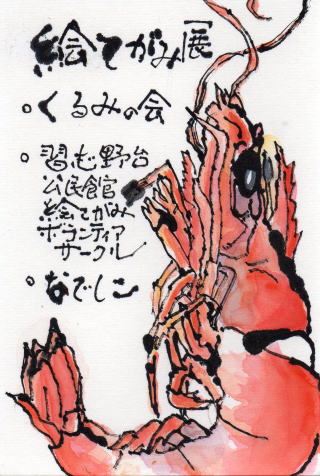 絵てがみ展
くるみの会
習志野台
公民館
絵てがみ
ボランティア
サークル
なでしこ